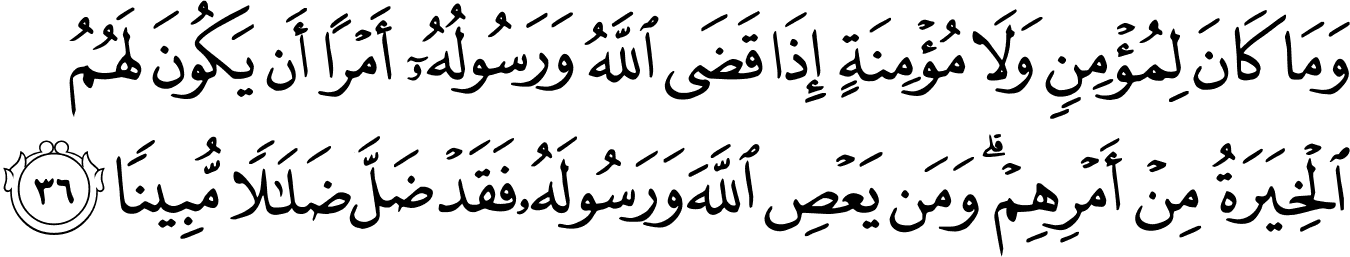 وَمَا كَانَ لِمُؤْمِنٍ وَلَا مُؤْمِنَةٍ إِذَا قَضَى ٱللَّهُ وَرَسُولُهُۥٓ أَمْرًا أَن يَكُونَ لَهُمُ
ٱلْخِيَرَةُ مِنْ أَمْرِهِمْ ۗ وَمَن يَعْصِ ٱللَّهَ وَرَسُولَهُۥ فَقَدْ ضَلَّ ضَلَـٰلًا مُّبِينًا ٣٦